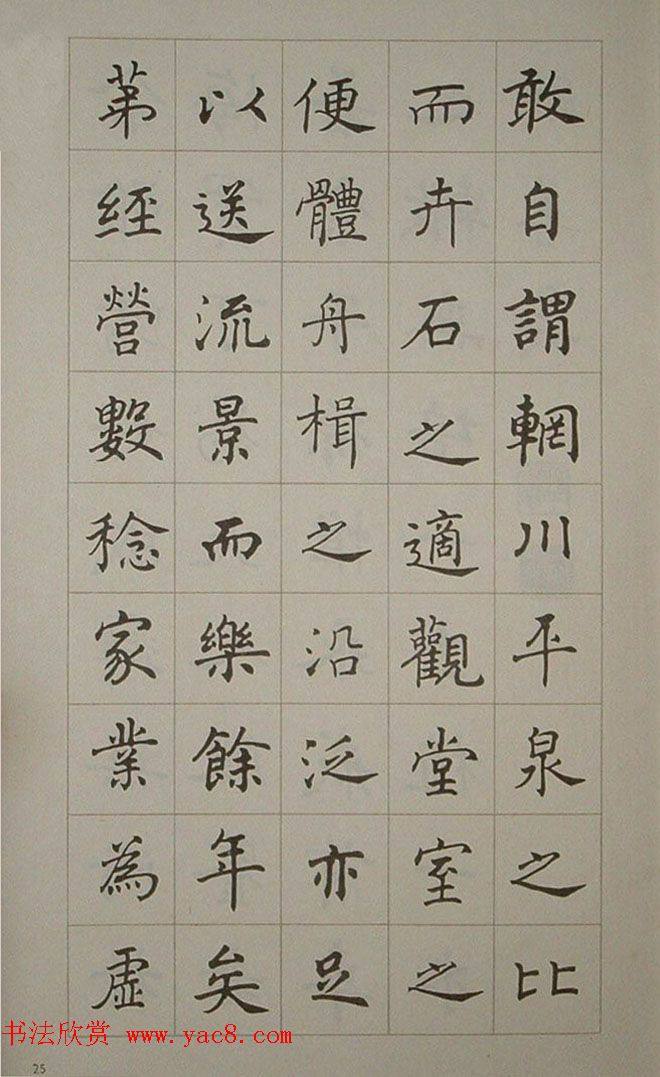 敢自謂輞川平泉之比
而卉石之適觀堂室之
便體舟楫之沿泛亦足
以送流景而樂餘年矣
苐經營數稔家業為虛
书法欣赏 www.yac8.com
25